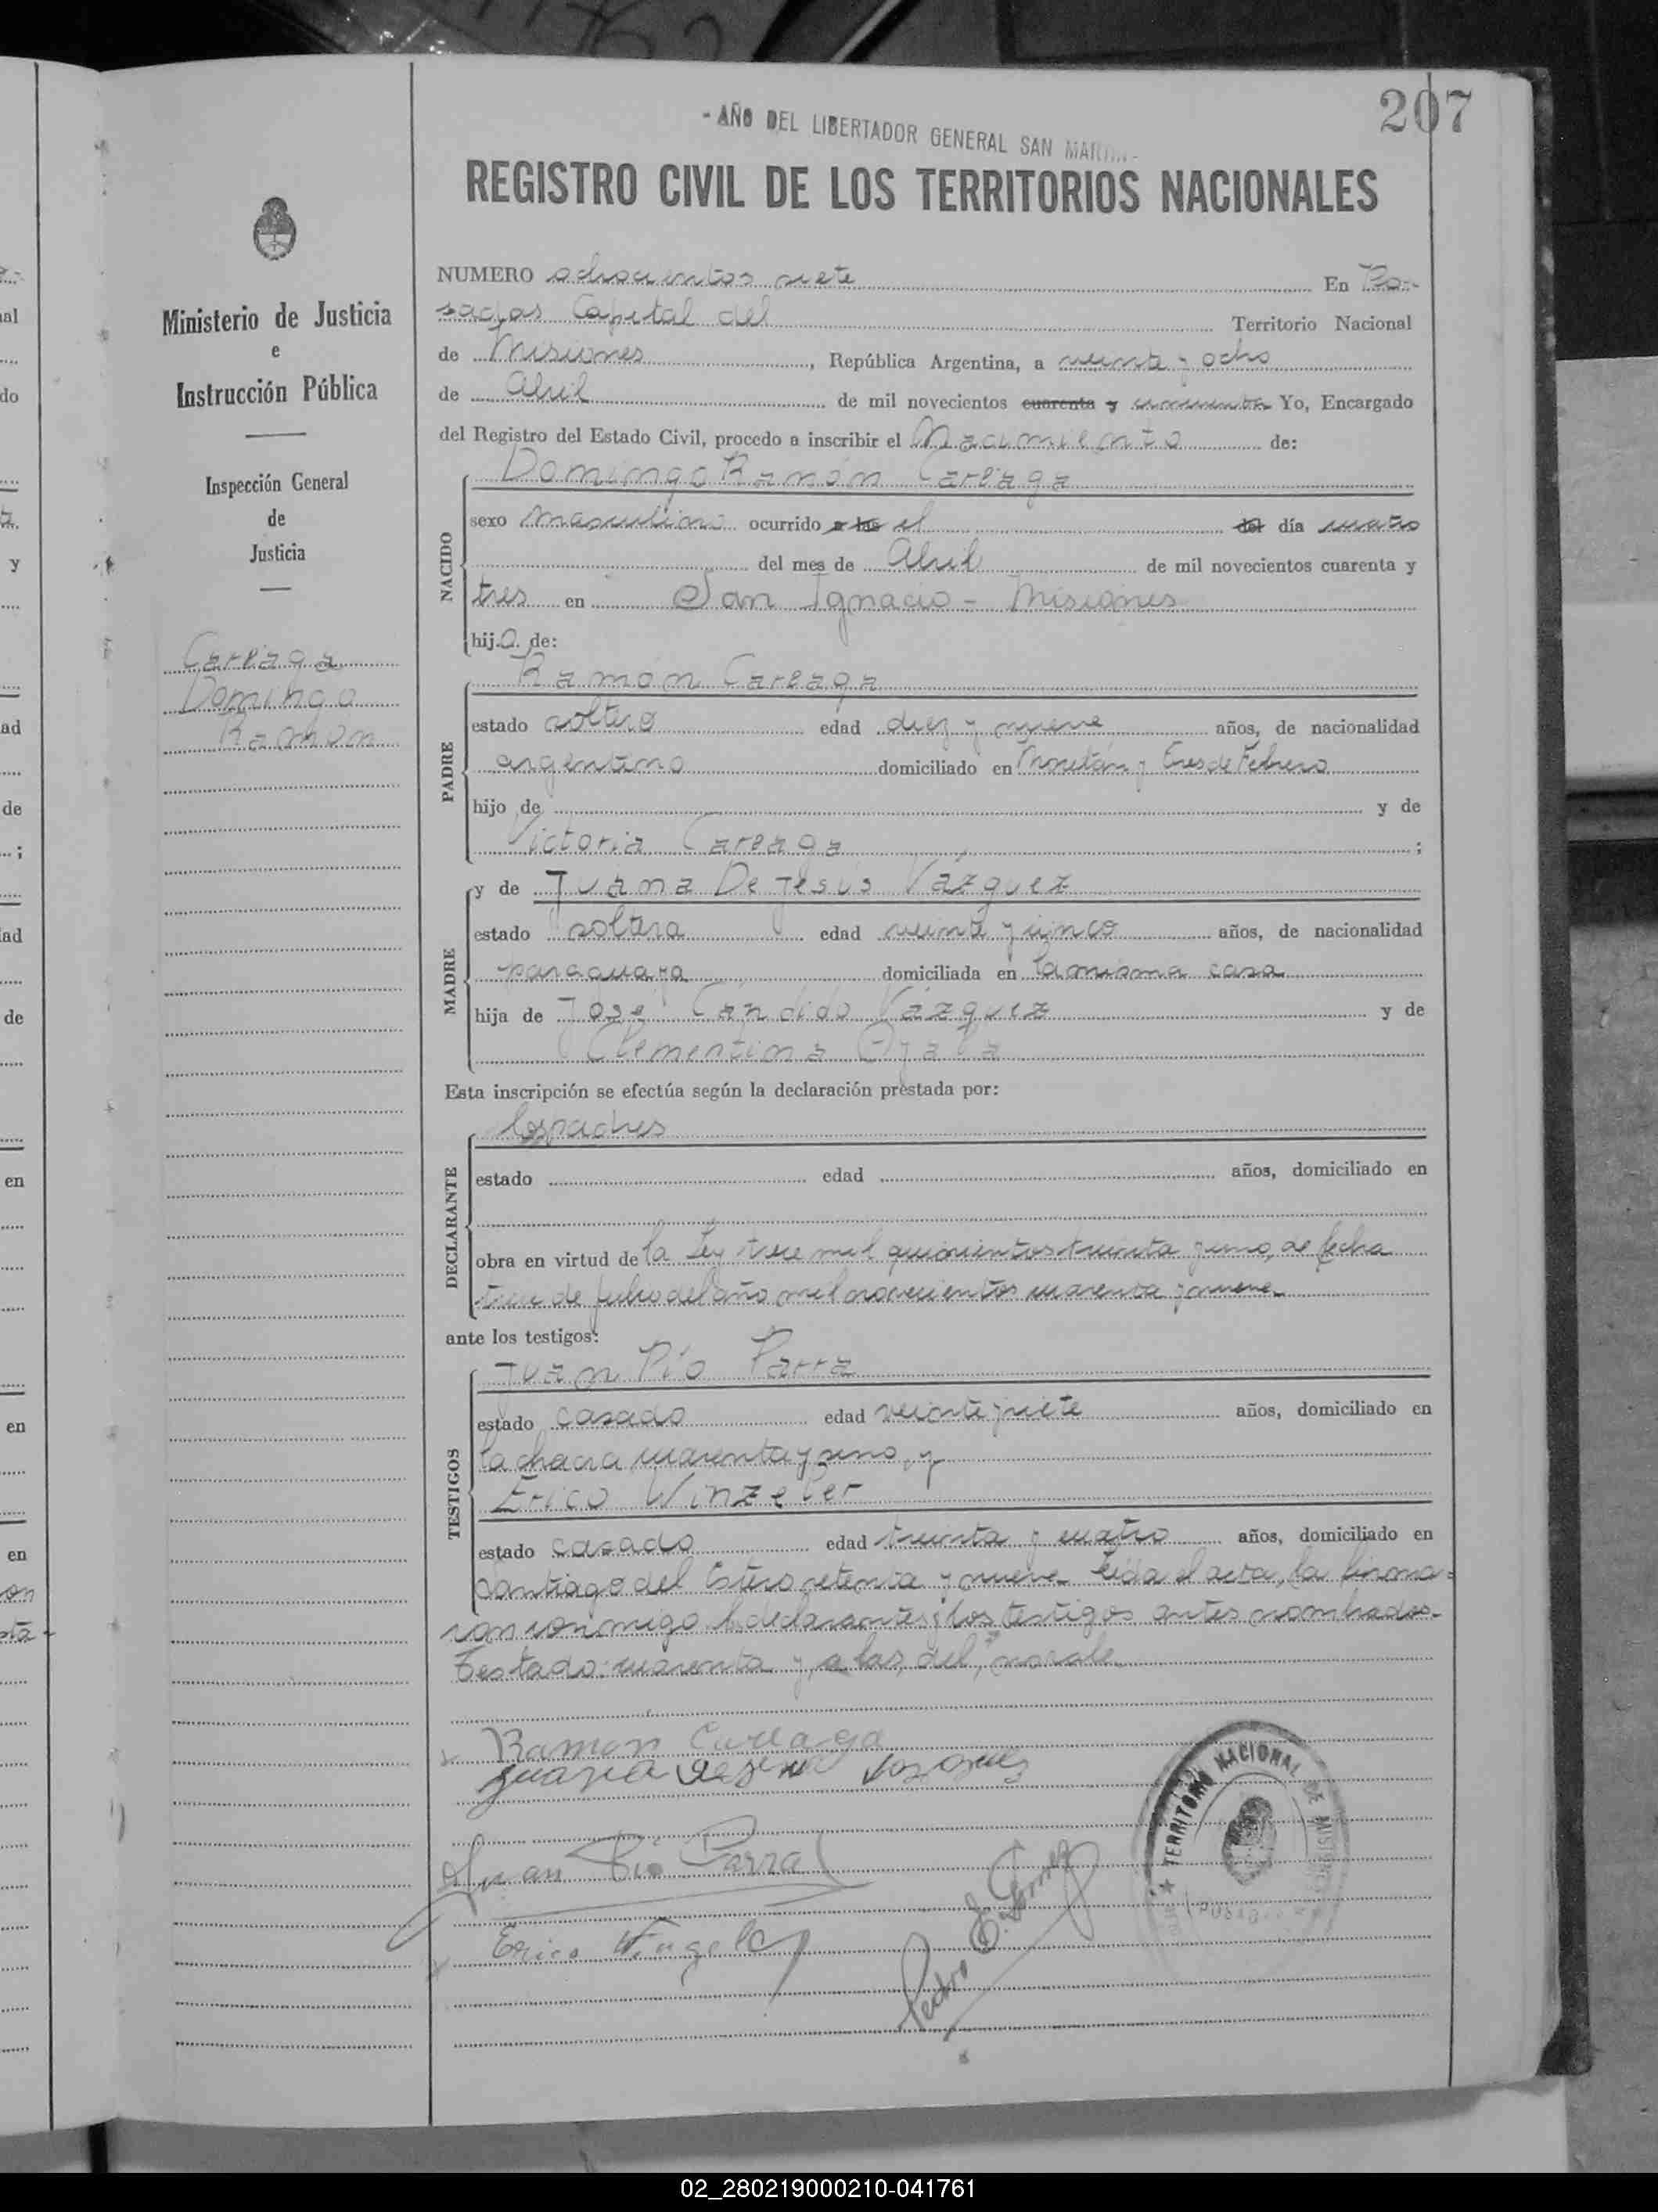 207
- AÑO DEL LIBERTADOR GENERAL SAN MARTIN -
REGISTRO CIVIL DE LOS TERRITORIOS NACIONALES
Ministerio de Justicia
e
Instrucción Pública
Inspección General
de
Justicia
Careaga
Domingo
Ramón
NUMERO ochocientos siete En Po-
sadas Capital del Territorio Nacional
de Misiones, República Argentina, a veinte y ocho
de Abril de mil novecientos cuarenta y cincuenta Yo, Encargado
del Registro del Estado Civil, procedo a inscribir el Nacimiento de:
NACIDO
Domingo Ramón Careaga
sexo masculino ocurrido a las el del día cuatro
del mes de Abril de mil novecientos cuarenta y
tres en San Ignacio - Misiones
hijo de:
PADRE
Ramón Careaga
estado soltero edad diez y nueve años, de nacionalidad
argentino domiciliado en y Tres de Febrero
hijo de y de
Victoria Careaga ;
MADRE
y de Juana De Jesús Vázquez
estado soltera edad veinte y cinco años, de nacionalidad
paraguaya domiciliada en la misma casa
hija de José Cándido Vázquez y de
Clementina Ayala
Esta inscripción se efectúa según la declaración prestada por:
DECLARANTE
los padres
estado edad años, domiciliado en
obra en virtud de la Ley trece mil quinientos treinta y uno, de fecha
trece de julio del año mil novecientos cuarenta y nueve
ante los testigos:
TESTIGOS
Juan Pío Parra
estado casado edad veinte y siete años, domiciliado en
la chacra cuarenta y uno, y
Erico Winzeler
estado casado edad treinta y cuatro años, domiciliado en
Santiago del Estero setenta y nueve Leída el acta, la firma-
ron conmigo los declarantes y los testigos antes nombrados-
Testado: cuarenta y, a las, del, no vale
Ramon Careaga
Juan Pío Parra
Erico Winzeler
Pedro E. Gomez
TERRITORIO NACIONAL DE MISIONES
02_280219000210-041761